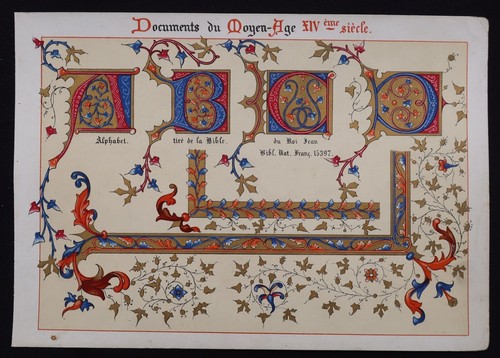 Documents du Moyen-Age XIV ème siècle.
A B C D
Alphabet. tiré de la Bible. du Roi Jean
Bibl. Nat. Franç. 15397.